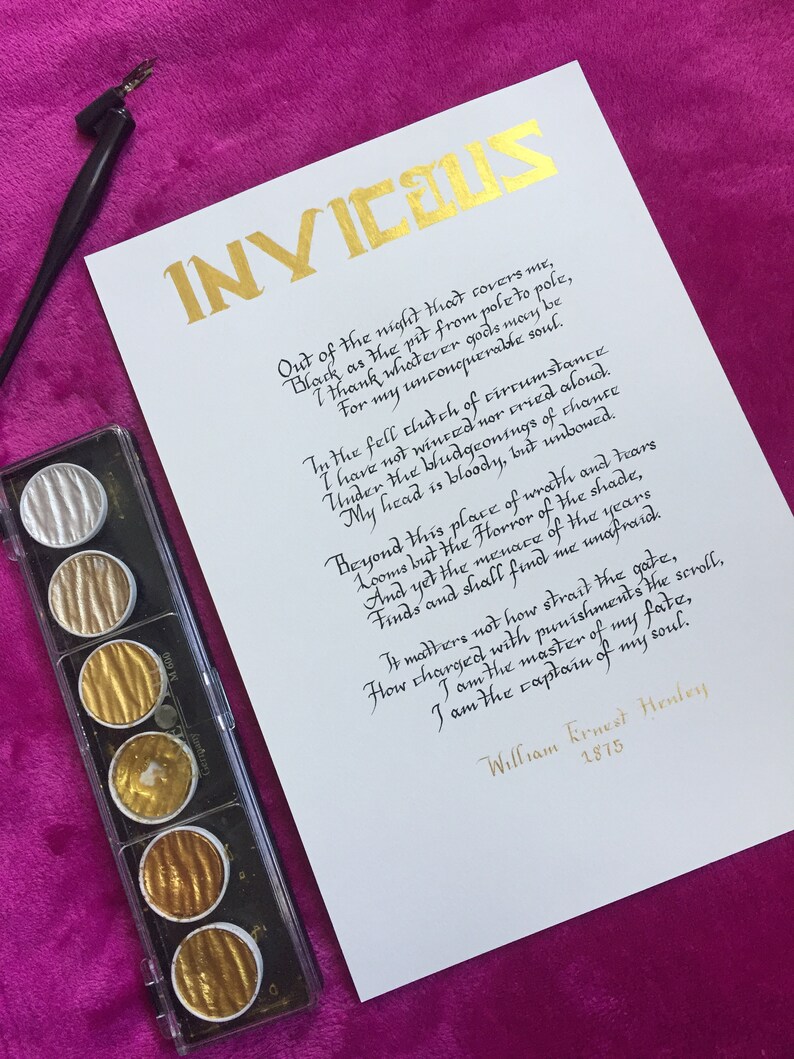 INVICTUS
Out of the night that covers me,
Black as the pit from pole to pole,
I thank whatever gods may be
For my unconquerable soul.
In the fell clutch of circumstance
I have not winced nor cried aloud.
Under the bludgeonings of chance
My head is bloody, but unbowed.
Beyond this place of wrath and tears
Looms but the Horror of the shade,
And yet the menace of the years
Finds and shall find me unafraid.
It matters not how strait the gate,
How charged with punishments the scroll,
I am the master of my fate,
I am the captain of my soul.
William Ernest Henley
1875
M 600
Germany